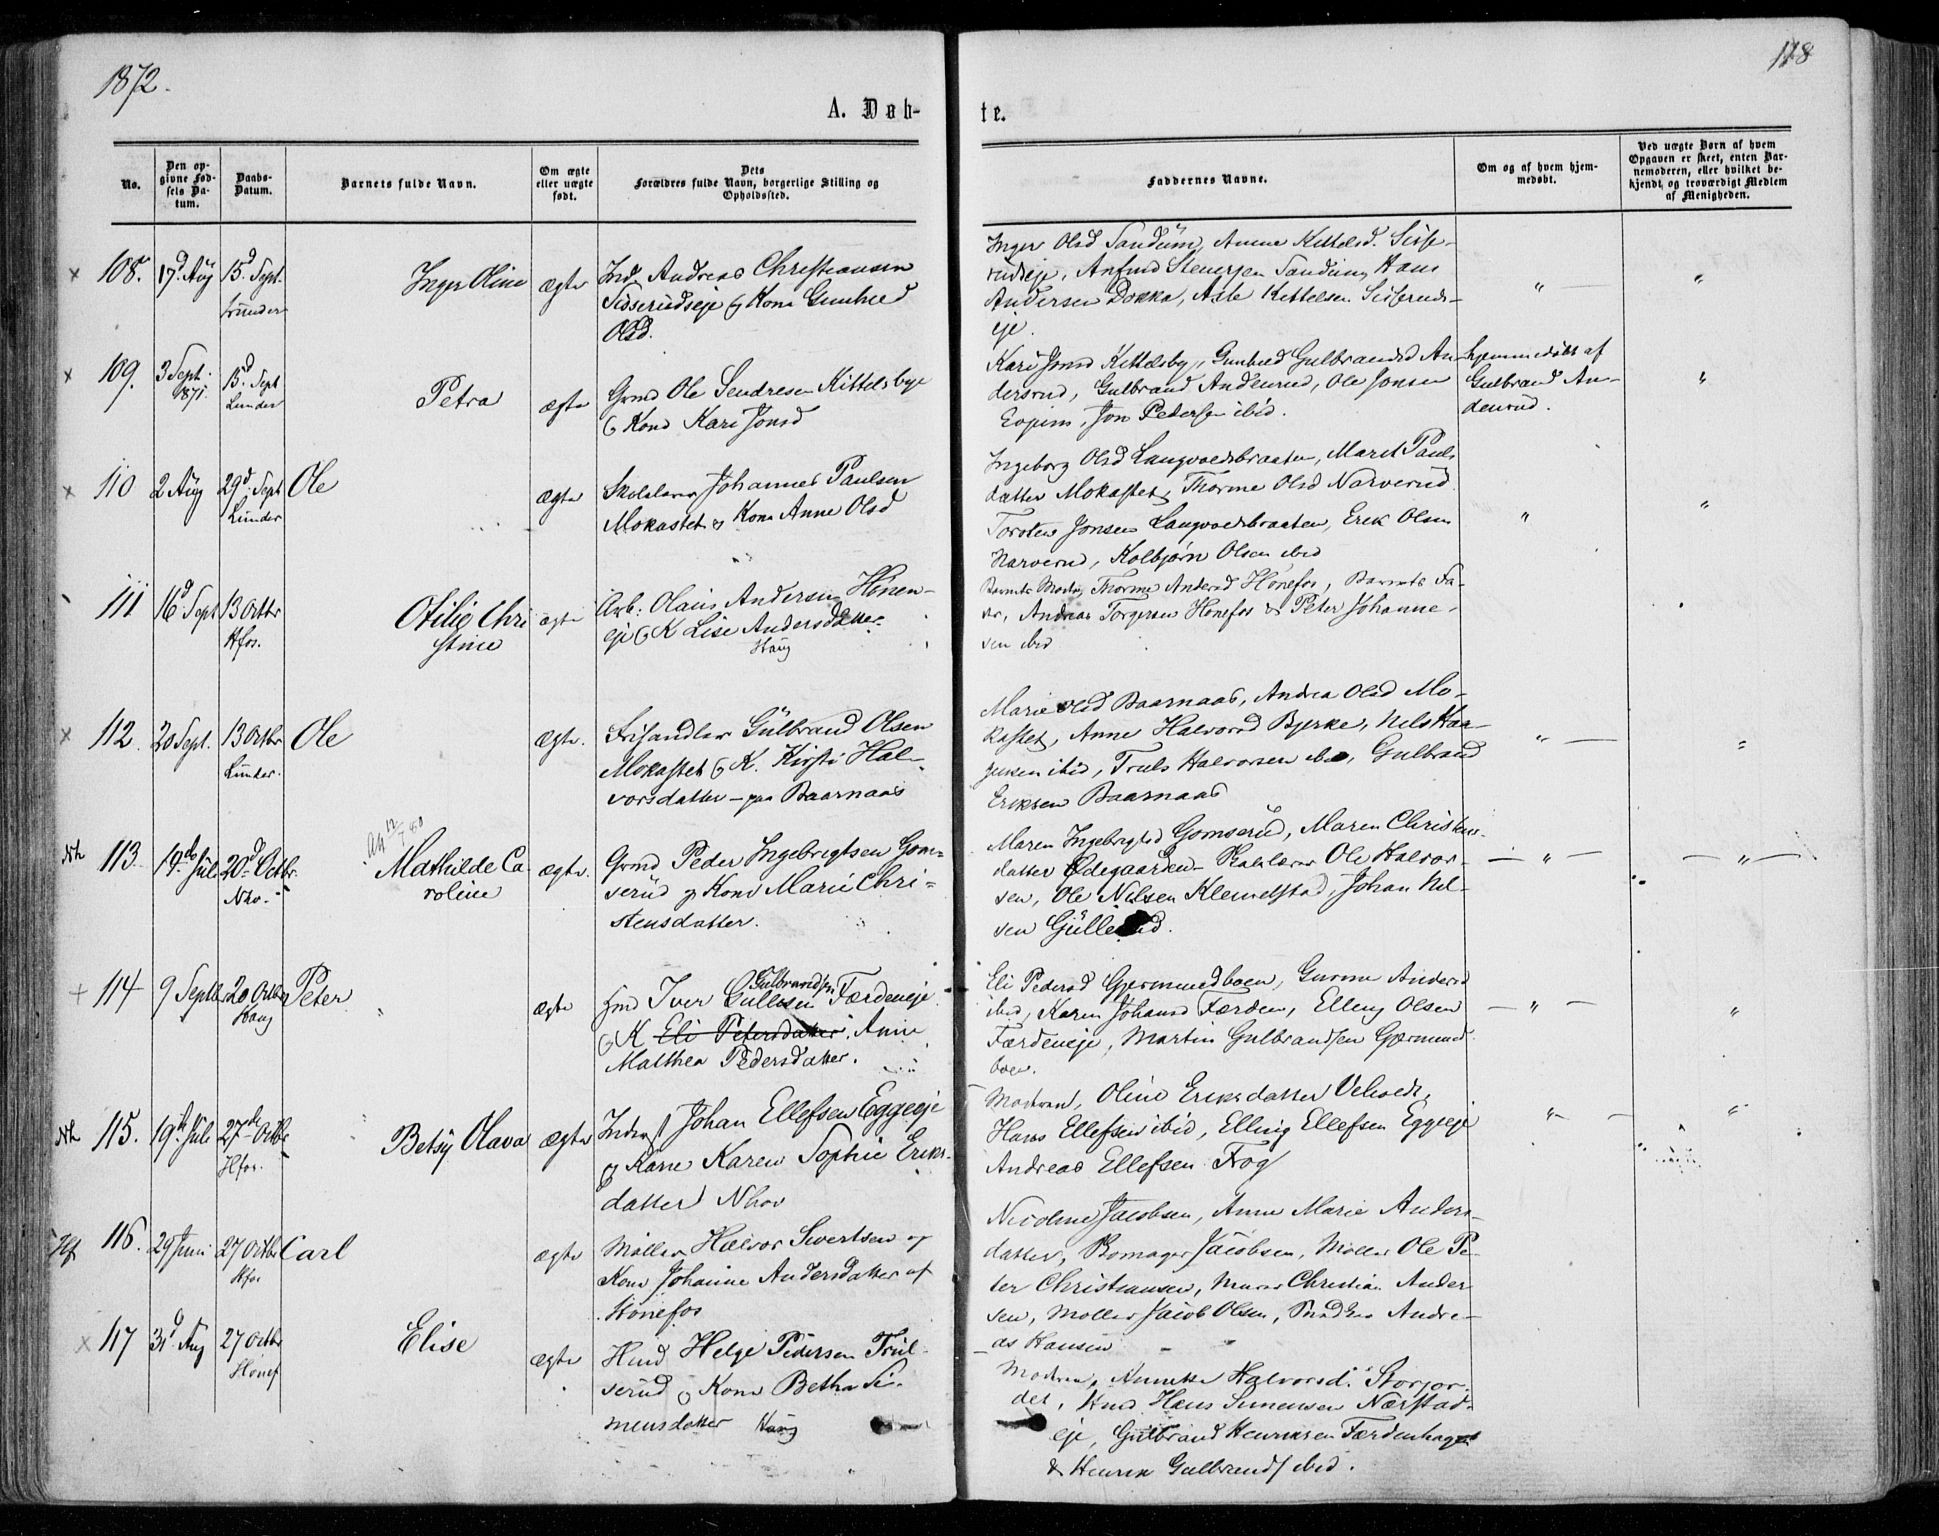 1872.
118
A. Døb-
te.
No.
Den op-
givne Fød-
sels Da-
tum.
Daabs-
Datum.
Barnets fulde Navn.
Om ægte
eller uægte
født.
Dets
Forældres fulde Navn, borgerlige Stilling og
Opholdssted.
Faddernes Navne.
Om og af hvem hjem-
medøbt.
Ved uægte Børn af hvem
Opgaven er skeet, enten Bar-
nemoderen, eller hvilket be-
kjendt og troværdigt Medlem
af Menigheden.
x 108. 17d Aug 15d Sept. Inger Oline ægte Ind. Andreas Christiansen
Lunder
Sisserudseje & Kone Gunhild
Olsd.
Inger Olsd Sandum, Anne Kittelsd. Sisse-
rudseje, Anfind Stenersen Sandum, Hans
Andersen Dokka, Asle Kittelsen Sisseruds-
eje.
" — "
x 109. 3 Sept. 1871. 15d Sept Petra ægte Grmd Ole Sendresen Kittelsbye
Lunder
& Kone Kari Jonsd
Kari Jonsd Kittelsby, Gunhild Gulbrandsd An-
dersrud, Gulbrand Andersrud, Ole Jonsen
Jon Pedersen ibid.
hjemmedøbt af
Gulbrand An-
dersrud.
"
x 110 2 Aug 29d Sept Ole ægte Skolelærer Johannes Paulsen
Lunder
Mokastet & Kone Anne Olsd
Ingeborg Olsd Langvoldsbraaten, Marit Pauls
datter Mokastet, Thorine Olsd Narverud
Torsten Jonsen Langvoldsbraaten, Erik Olsen
Narverud, Kolbjørn Olsen ibid
" "
111 16d Sept 13 Octbr Otilie Chri ægte Arb: Olaus Andersen Hønen-
Hfos.
stine
eje & K Lise Andersdatter.
Haug
Barnets Moder, Thorine Andersd Hønefos, Barnets Fa-
der, Andreas Torgersen Hønefos & Peter Johanne-
sen ibid
x 112 20 Sept. 13 Octbr Ole ægte. Frihandler Gulbrand Olsen
Lunder.
Mokastet & K. Kirsti Hal-
vorsdatter – paa Baarnaas
Marie Olsd Baarnaas, Andrea Olsd Mo-
kastet, Anne Halvorsd Bjerke, Nels Haa-
gensen ibid, Truls Halvorsen ibid, Gulbrand
Eriksen Baarnaas
" — "
Nh 113 19de Juli 20d Octbr. Mathilde Ca- ægte. Grmd Peder Ingebrigtsen Gom-
Nho.
roline
serud & Kone Marie Chri-
stensdatter.
Maren Ingebrigtsd Gomserud, Maren Christens-
datter Ødegaarden Skolelærer Ole Halvor-
sen, Ole Nilsen Klemetstad, Johan Nil-
sen Gullerud.
— " — — " —
+ 114 9 Septb 20 Octbr Peter ægte
Haug
Gulbrandsen
Hmd Iver Gullesen Færdeneje
& K Eli Petersdatter. Anne
Mathea Pedersdatter.
Eli Pedersd Gjermundboen, Gunne Andersd
ibid, Karen Johansd Færden, Elling Olsen
Færdeneje, Martin Gulbrandsen Gjermund
boen.
— " — "
Nh 115. 19de Juli 27de Octbr Betsy Olava ægte Inderst Johan Ellefsen Eggeeje
Hfos.
& Kone Karen Sophie Eriks-
datter Nhov
Moderen, Oline Eriksdatter Velvold,
Hans Ellefsen ibid, Elling Ellefsen Eggeeje
Andreas Ellefsen Frog
" — "
Hf 116. 29 Juni 27 Octbr Carl ægte Møller Halvor Sivertsen og
Hfos
Kone Johanne Andersdatter af
Hønefos
Nicoline Jacobsen, Anne Marie Anders-
datter, Bomager Jacobsen, Møller Ole Pe-
ter Christiansen, Murer Christian Ander
sen, Møller Jacob Olsen, Andre-
as Hansen
x 117 31d Aug 27 Octbr Elise ægte Hmd Helge Pedersen Trul-
Hønef
serud & Kone Betha Si-
mensdatter Haug
Moderen, Annette Halvorsd. Storjor-
det, Hmd Hans Simensen Nærstad-
eje, Gulbrand Henriksen Færdenhagen
& Henrik Gulbrands ibid.